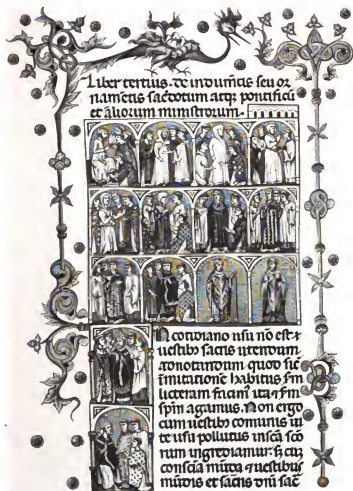 Liber tertius. de indumētis seu or
namētis sacerdotum atq; pontificū
et aliorum ministrorum.
N cotidiano usu nō est
uestib; sacris utendum
adnotandum quod sic
īmutatione habitus
licteram facim; ita
spm agamus. Non ergo
cum uestib; comunis ui
te usu pollutus īn scā scō
rum ingrediamur. cū
conscia mūda uestibus
mūdis et sacris dnī sac